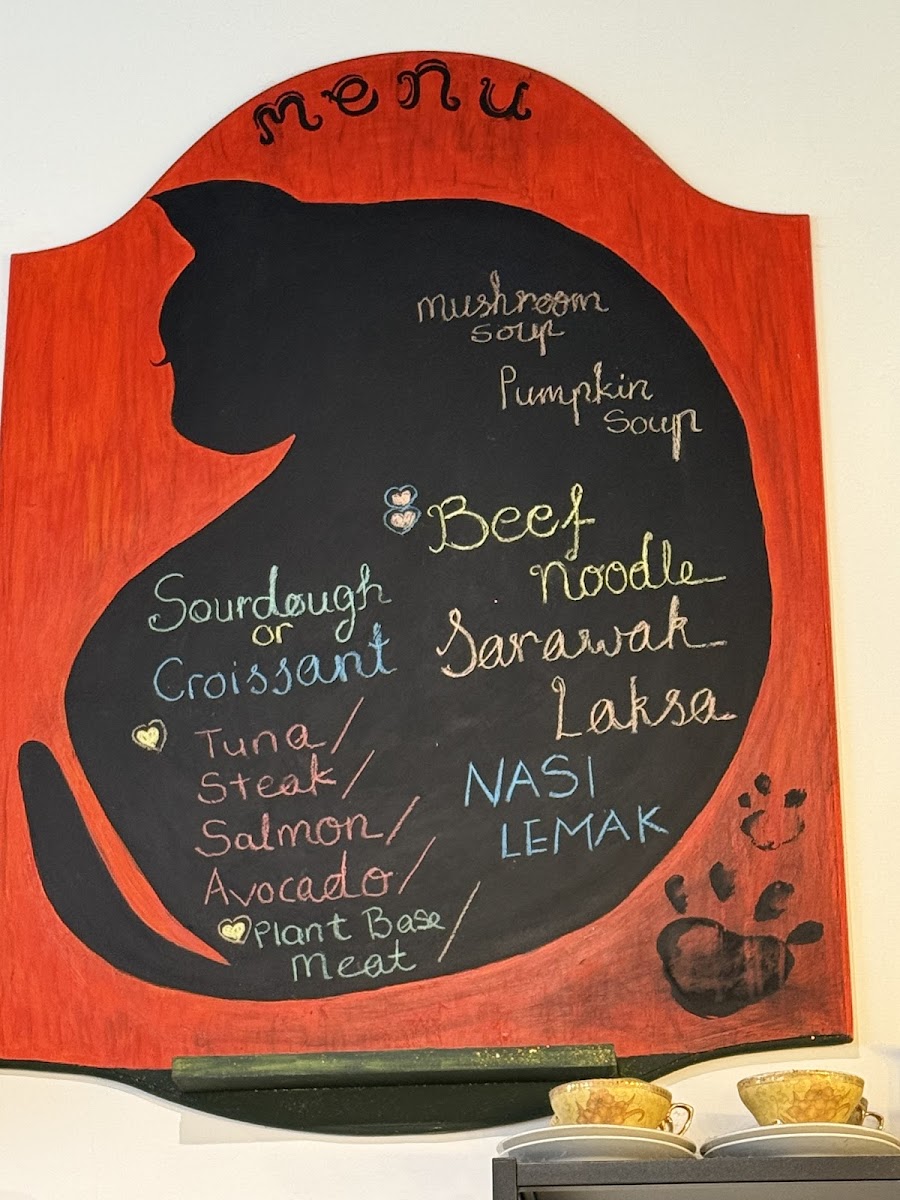 menu
mushroom
soup
Pumpkin
Soup
Beef
noodle
Sarawak
Laksa
NASI
LEMAK
Sourdough
or
Croissant
Tuna/
Steak/
Salmon/
Avocado/
Plant Base/
meat